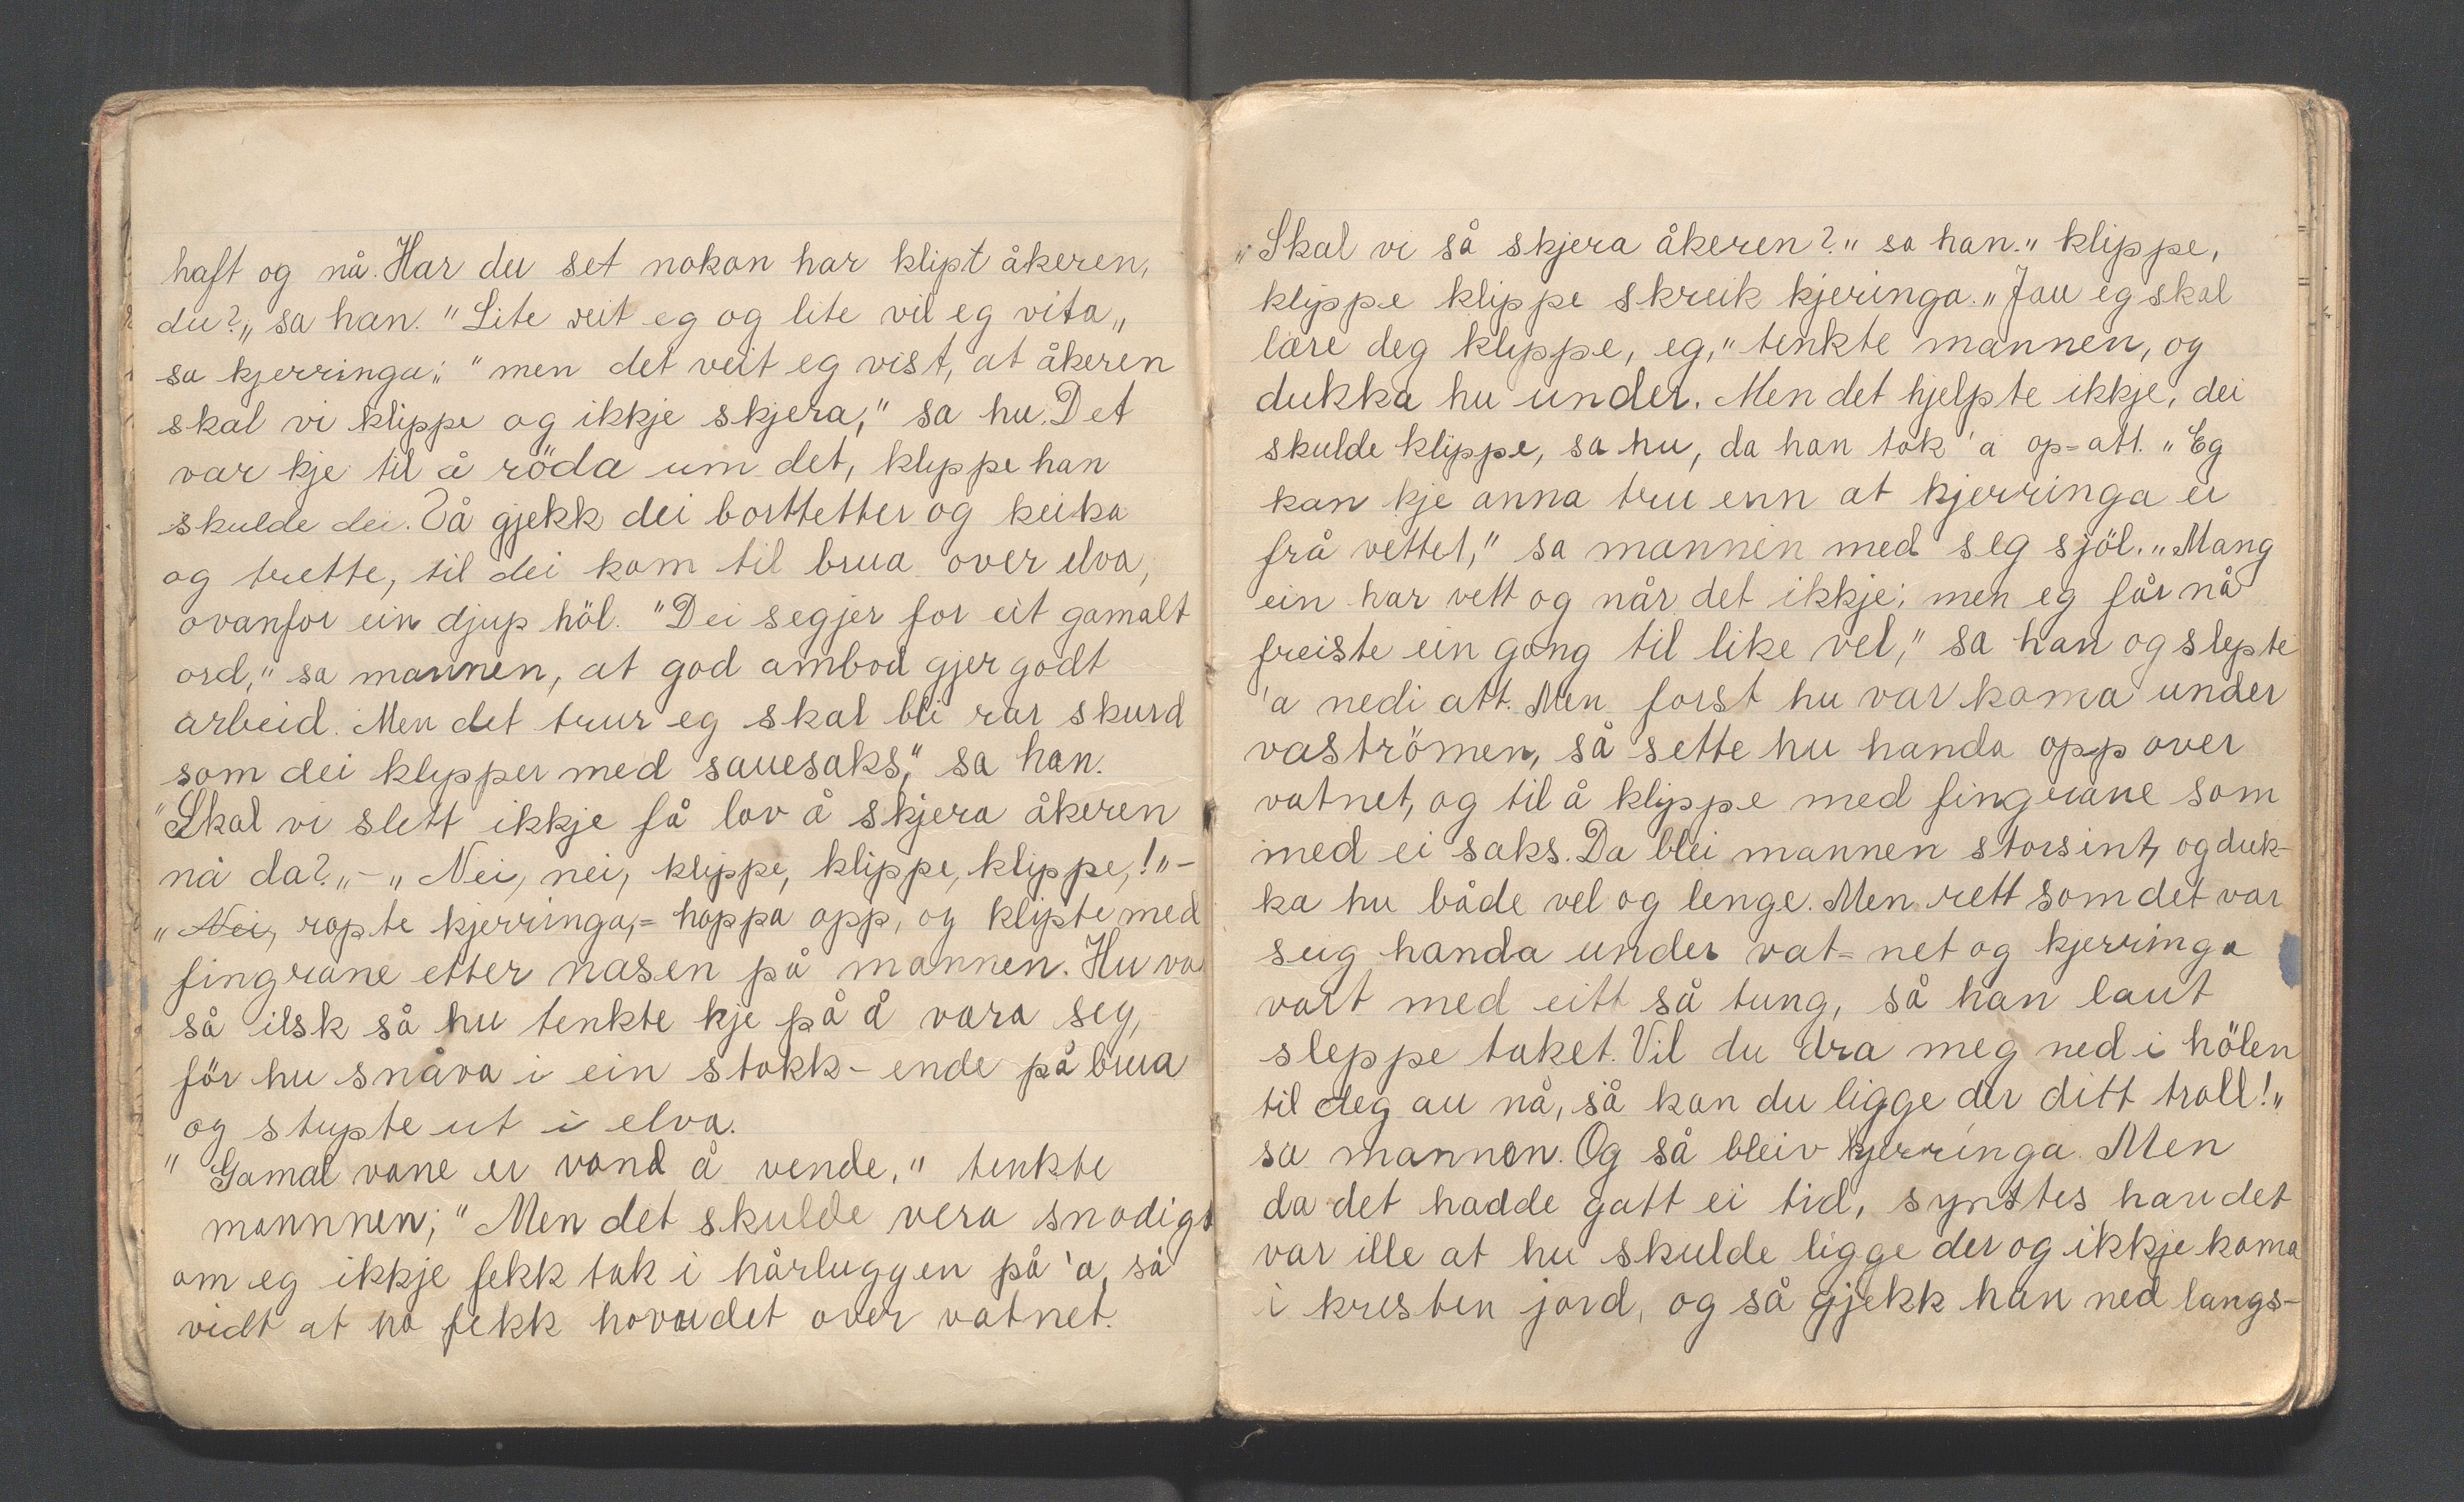 haft og nå. Har du set nokon har klipt åkeren,
du?„ sa han. "Lite veit eg og lite vil eg vita„
sa kjerringa; "men det veit eg vist, at åkeren
skal vi klippe og ikkje skjera," sa hu. Det
var kje til å röda um det, klippe han
skulde dei. Så gjekk dei borttetter og keika
og trette, til dei kom til brua over elva,
ovanfor ein djup höl. "Dei segjer for eit gamalt
ord," sa mannen, at god ambod gjer godt
arbeid. Men det trur eg skal bli rar skurd
som dei klipper med sauesaks," sa han.
"Skal vi slett ikkje få lov å skjera åkeren
nå da?„ - „Nei, nei, klippe, klippe, klippe,!" -
„Nei, ropte kjerringa,= hoppa opp, og klipte med
fingrane etter nasen på mannen. Hu va
så ilsk så hu tenkte kje på å vara seg,
för hu snåva i ein stokk- ende på brua
og stupte ut i elva.
" Gamal vane er vond å vende," tenkte
mannnen; "Men det skulde vera snodigt
om eg ikkje fekk tak i hårluggen på 'a, så
vidt at ho fekk hovudet over vatnet.
„Skal vi så skjera åkeren?" sa han." klippe,
klippe klippe skreik kjeringa. „Jau eg skal
lære deg klippe, eg," tenkte mannen, og
dukka hu under. Men det hjelpte ikkje, dei
skulde klippe, sa hu, da han tok 'a op=att. „Eg
kan kje anna tru enn at kjerringa er
frå vettet," sa mannen med seg sjöl. „Mang
ein har vett og når det ikkje; men eg får nå
freiste ein gong til like vel," sa han og slepte
'a nedi att. Men forst hu var koma under
vaströmen, så sette hu handa opp over
vatnet, og til å klippe med fingrane som
med ei saks. Da blei mannen storsint, og duk-
ka hu både vel og lenge. Men rett som det var
seig handa under vat= net og kjerringa
vart med eitt så tung, så han laut
sleppe taket. Vil du dra meg ned i hölen
til deg au nå, så kan du ligge der ditt troll!„
sa mannen. Og så bleiv kjerringa. Men
da det hadde gatt ei tid, synstes han det
var ille at hu skulde ligge der og ikkje koma
i kristen jord, og så gjekk han ned langs-